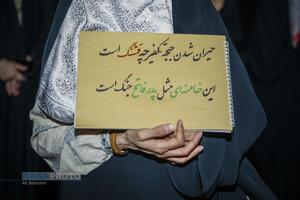 حیران شدن حیجة تکفیر چه قشنگ است
این خامنه‌ای مثل پدر فاتح جنگ است
RASAPHOTO
Ali Bahrami